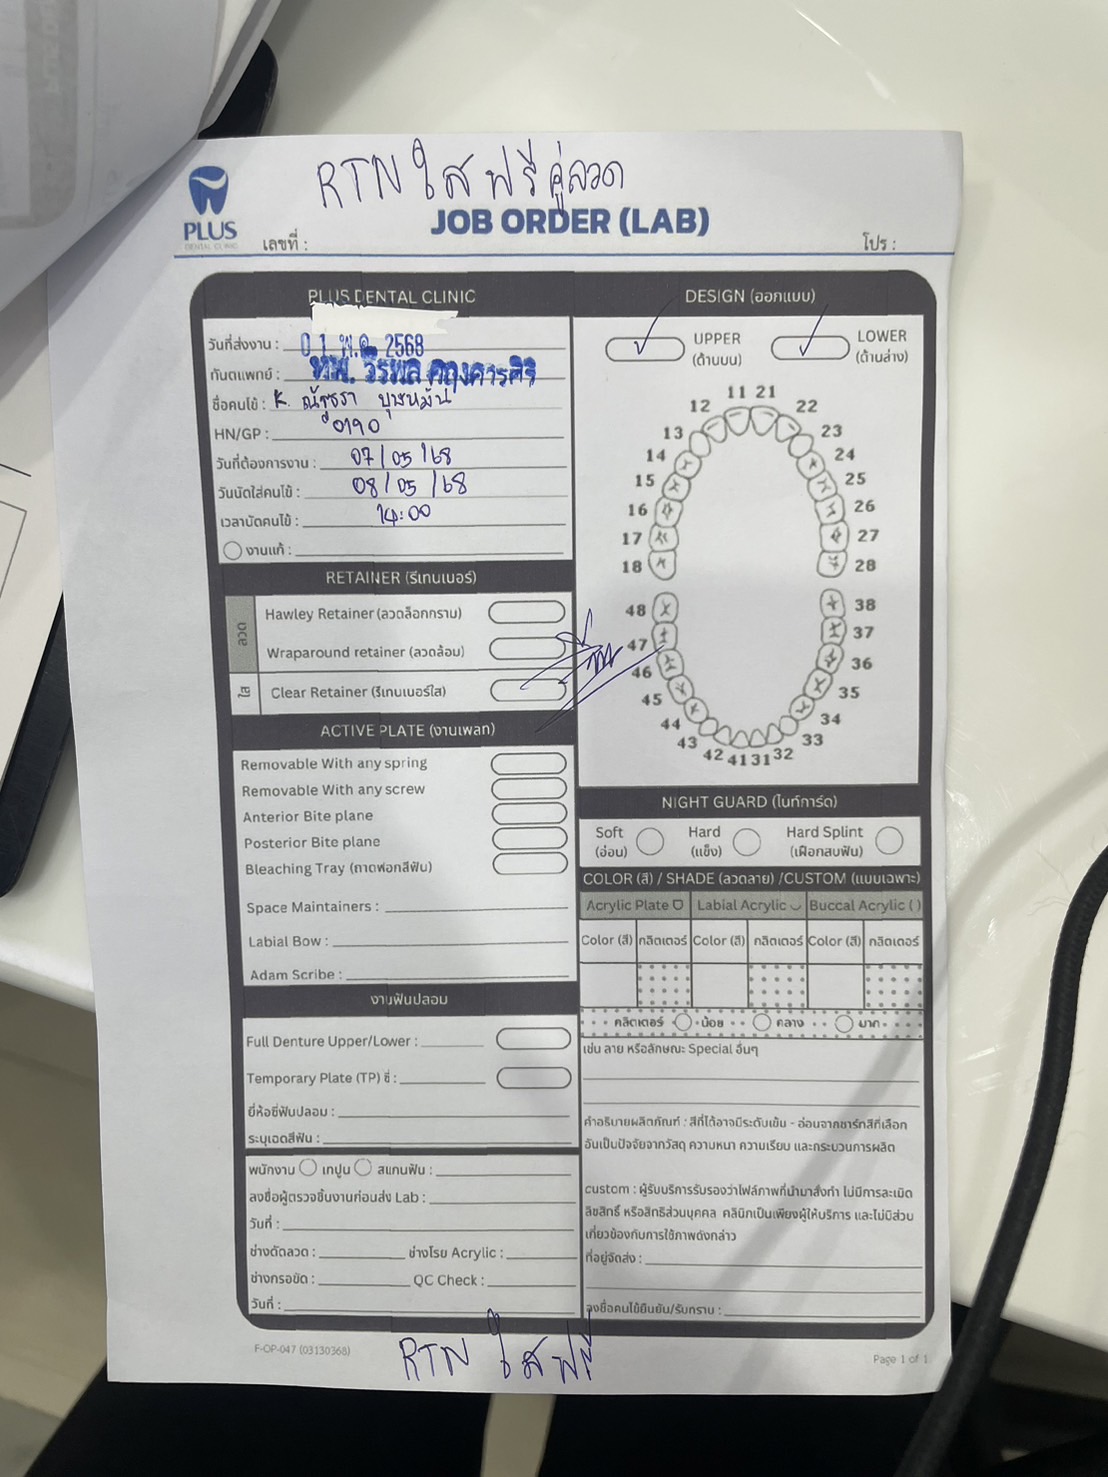 RTN ใส ฟรี คู่ลวด
PLUS
DENTAL CLINIC
JOB ORDER (LAB)
เลขที่ :
โปร :
PLUS DENTAL CLINIC
วันที่ส่งงาน : 01 พ.ค. 2568
ทันตแพทย์ : ทพ. วีรพล
ชื่อคนไข้ : K.
HN/GP : 0190
วันที่ต้องการงาน : 07/05/68
วันนัดใส่คนไข้ : 08/05/68
เวลานัดคนไข้ : 14:00
งานแก้ :
RETAINER (รีเทนเนอร์)
ลวด
Hawley Retainer (ลวดล็อกกราม)
Wraparound retainer (ลวดล้อม)
ใส
Clear Retainer (รีเทนเนอร์ใส)
ACTIVE PLATE (งานเพลท)
Removable With any spring
Removable With any screw
Anterior Bite plane
Posterior Bite plane
Bleaching Tray (ถาดฟอกสีฟัน)
Space Maintainers :
Labial Bow :
Adam Scribe :
งานฟันปลอม
Full Denture Upper/Lower :
Temporary Plate (TP) ซี่ :
ยี่ห้อซี่ฟันปลอม :
ระบุเฉดสีฟัน :
พนักงาน เทปูน สแกนฟัน :
ลงชื่อผู้ตรวจชิ้นงานก่อนส่ง Lab :
วันที่ :
ช่างดัดลวด : ช่างโรย Acrylic :
ช่างกรอขัด : QC Check :
วันที่ :
DESIGN (ออกแบบ)
UPPER
(ด้านบน)
LOWER
(ด้านล่าง)
11 21
12 22
13 23
14 24
15 25
16 26
17 27
18 28
48 38
47 37
46 36
45 35
44 34
43 33
42 41 31 32
NIGHT GUARD (ไนท์การ์ด)
Soft
(อ่อน)
Hard
(แข็ง)
Hard Splint
(เฝือกสบฟัน)
COLOR (สี) / SHADE (ลวดลาย) /CUSTOM (แบบเฉพาะ)
Acrylic Plate Labial Acrylic Buccal Acrylic ( )
Color (สี) กลิตเตอร์ Color (สี) กลิตเตอร์ Color (สี) กลิตเตอร์
กลิตเตอร์ น้อย กลาง มาก
เช่น ลาย หรือลักษณะ Special อื่นๆ
คำอธิบายผลิตภัณฑ์ : สีที่ได้อาจมีระดับเข้ม - อ่อนจากชาร์ทสีที่เลือก
อันเป็นปัจจัยจากวัสดุ ความหนา ความเรียบ และกระบวนการผลิต
custom : ผู้รับบริการรับรองว่าไฟล์ภาพที่นำมาสั่งทำ ไม่มีการละเมิด
ลิขสิทธิ์ หรือสิทธิส่วนบุคคล คลินิกเป็นเพียงผู้ให้บริการ และไม่มีส่วน
เกี่ยวข้องกับการใช้ภาพดังกล่าว
ที่อยู่จัดส่ง :
ลงชื่อคนไข้ยืนยัน/รับทราบ :
F-OP-047 (03130368)
RTN ใส ฟรี
Page 1 of 1